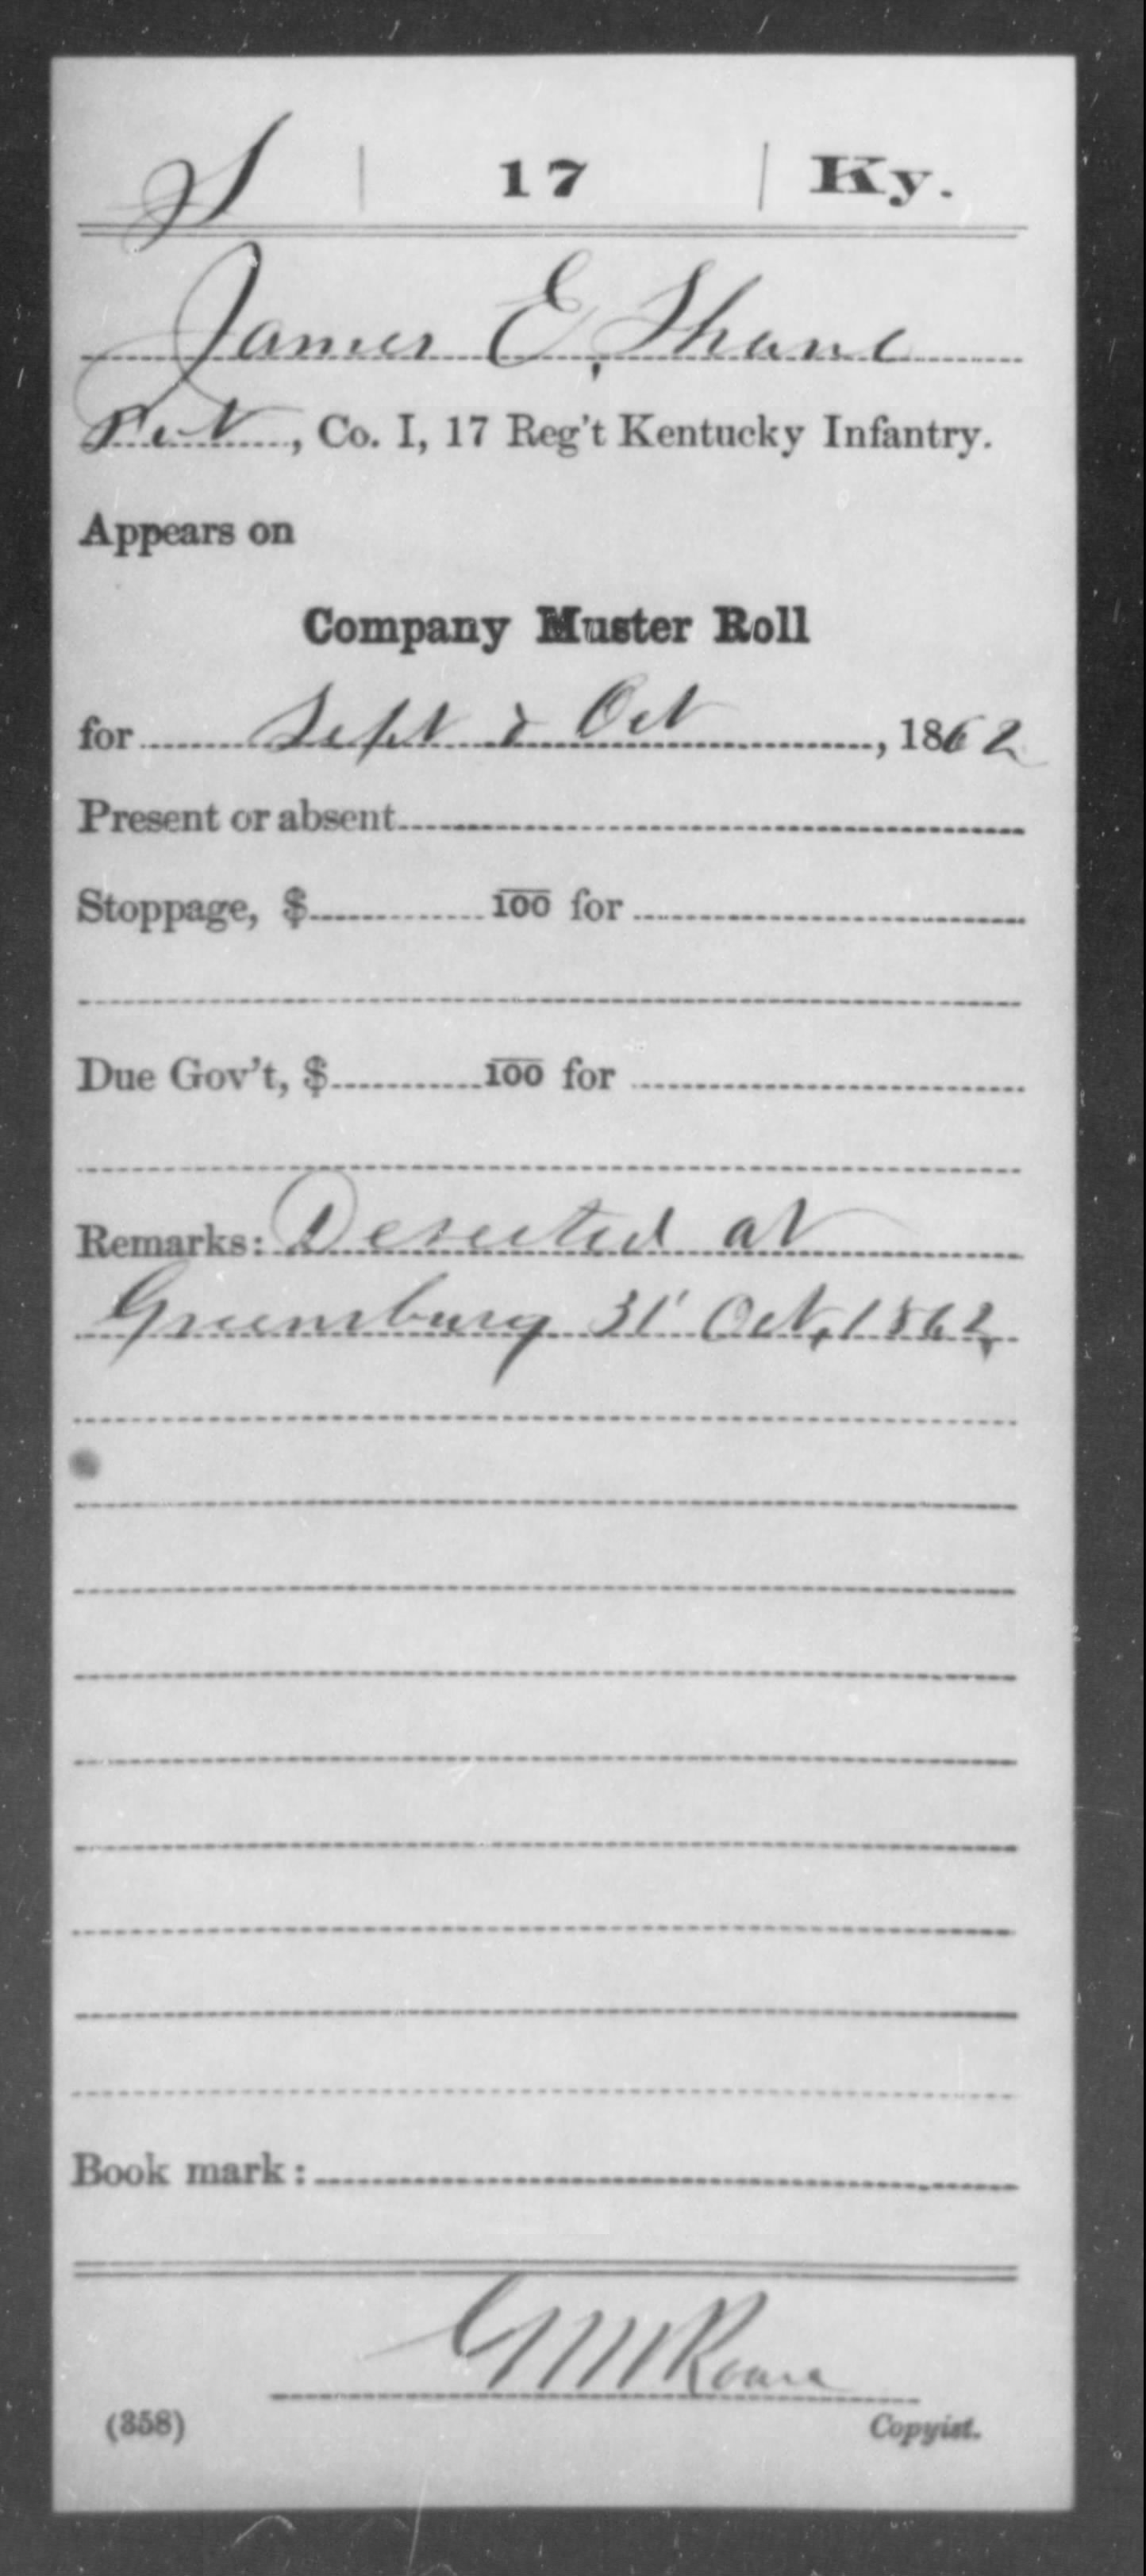 S | 17 | Ky.
James E. Shane
Pvt, Co. I, 17 Reg't Kentucky Infantry.
Appears on
Company Muster Roll
for Sept & Oct, 1862
Present or absent
Stoppage, $ 100 for
Due Gov't, $ 100 for
Remarks: Deserted at
Greensburg 31' Oct, 1862,
Book mark:
G M Roane
(358) Copyist.